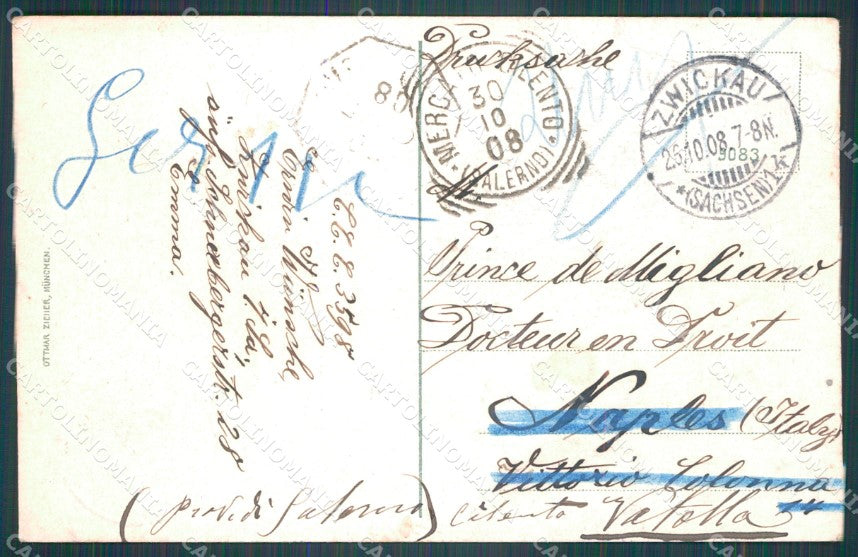 Drucksache
MERCATO CILENTO
30
10
08
(SALERNO)
ZWICKAU
26.10.08.7-8N.
*(SACHSEN)1k
9083
Prince de Migliano
Docteur en Droit
Naples (Italy)
Vittorio Colonna
14
Cilento Vatolla
(prov. di Salerno)
C.C.C. 3598
Erwin Wünsche
Zwickau i. Sa,
Schneebergerstr. 28
Emma.
OTTMAR ZIEHER, MÜNCHEN.
CARTOLINOMANIA